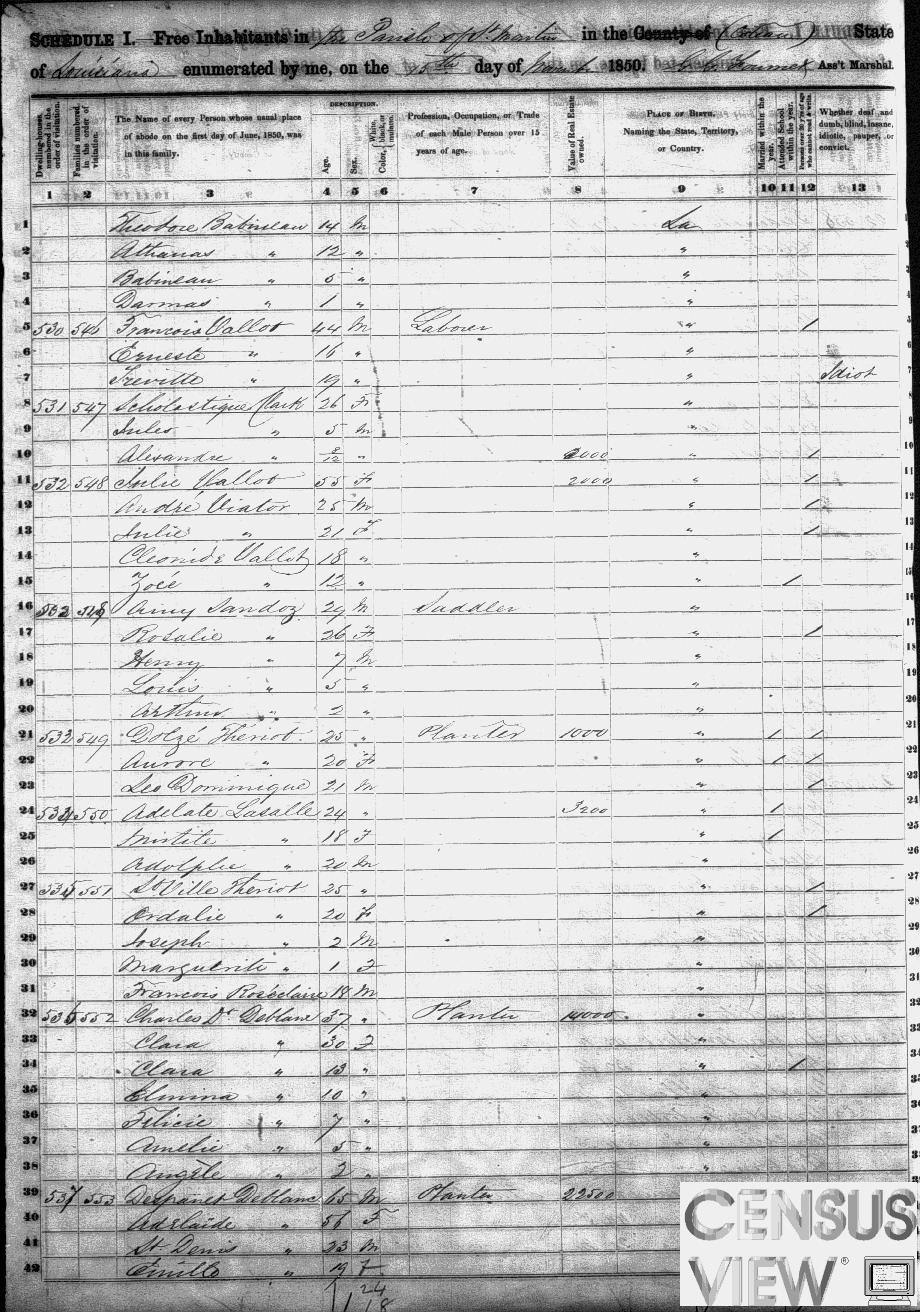 SCHEDULE I. Free Inhabitants in the Parish of St Martin in the County of State
of Louisiana enumerated by me, on the 15th day of 1850. Ass't Marshal.
Dwelling-houses numbered in the order of visitation.
Families numbered in the order of visitation.
The Name of every Person whose usual place of abode on the first day of June, 1850, was in this family.
DESCRIPTION.
Age.
Sex.
Color, White, black, or mulatto.
Profession, Occupation, or Trade of each Male Person over 15 years of age.
Value of Real Estate owned.
PLACE OF BIRTH. Naming the State, Territory, or Country.
Married within the year.
Attended School within the year.
Persons over 20 y'rs of age who cannot read & write
Whether deaf and dumb, blind, insane, idiotic, pauper, or convict.
1 2 3 4 5 6 7 8 9 10 11 12 13
1 Theodore Babineau 14 M La
2 Athanas " 12 " "
3 Babineau " 5 " "
4 Darmas " 1 " "
5 530 546 Francois Vallot 44 M Laborer " /
6 Erneste " 16 " "
7 Treville " 19 " " Idiot
8 531 547 Scholastique Clark 26 F "
9 Jules " 5 M "
10 Alexandre " 8/12 " 2000 " /
11 532 548 Julie Vallot 55 F 2000 " /
12 André Viator 25 M " /
13 Julie " 21 F " /
14 Cleonide Vallot 18 " "
15 Zoé " 12 " " /
16 532 548 Sandoz 29 M Saddler "
17 Rosalie " 26 F " /
18 Henry " 7 M "
19 Louis " 5 " "
20 Arthur " 2 " "
21 533 549 Dolzé Theriot 25 " Planter 1000 " / /
22 Aurore " 20 F " / /
23 Leo Dominique 21 M " /
24 534 550 Adelate Lasalle 24 " 3200 " /
25 Mistite " 18 F " /
26 Adolphe " 20 M "
27 535 551 St Ville Theriot 25 " " /
28 Ordalie " 20 F " /
29 Joseph " 2 M "
30 Marguerite " 1 F "
31 Francois Roséclaire 18 M "
32 536 552 Charles Dt Deblanc 37 " Planter 14000 "
33 Clara " 30 F "
34 Clara " 13 " " /
35 Elmina " 10 " "
36 Felicie " " 7 " "
37 Amelie " 5 " "
38 Angele " 2 " "
39 537 553 Despanet Deblanc 65 M Planter 22500
40 Adelaide " 56 F
41 St Denis " 23 M
42 " 19 F
24
18
CENSUS
VIEW®